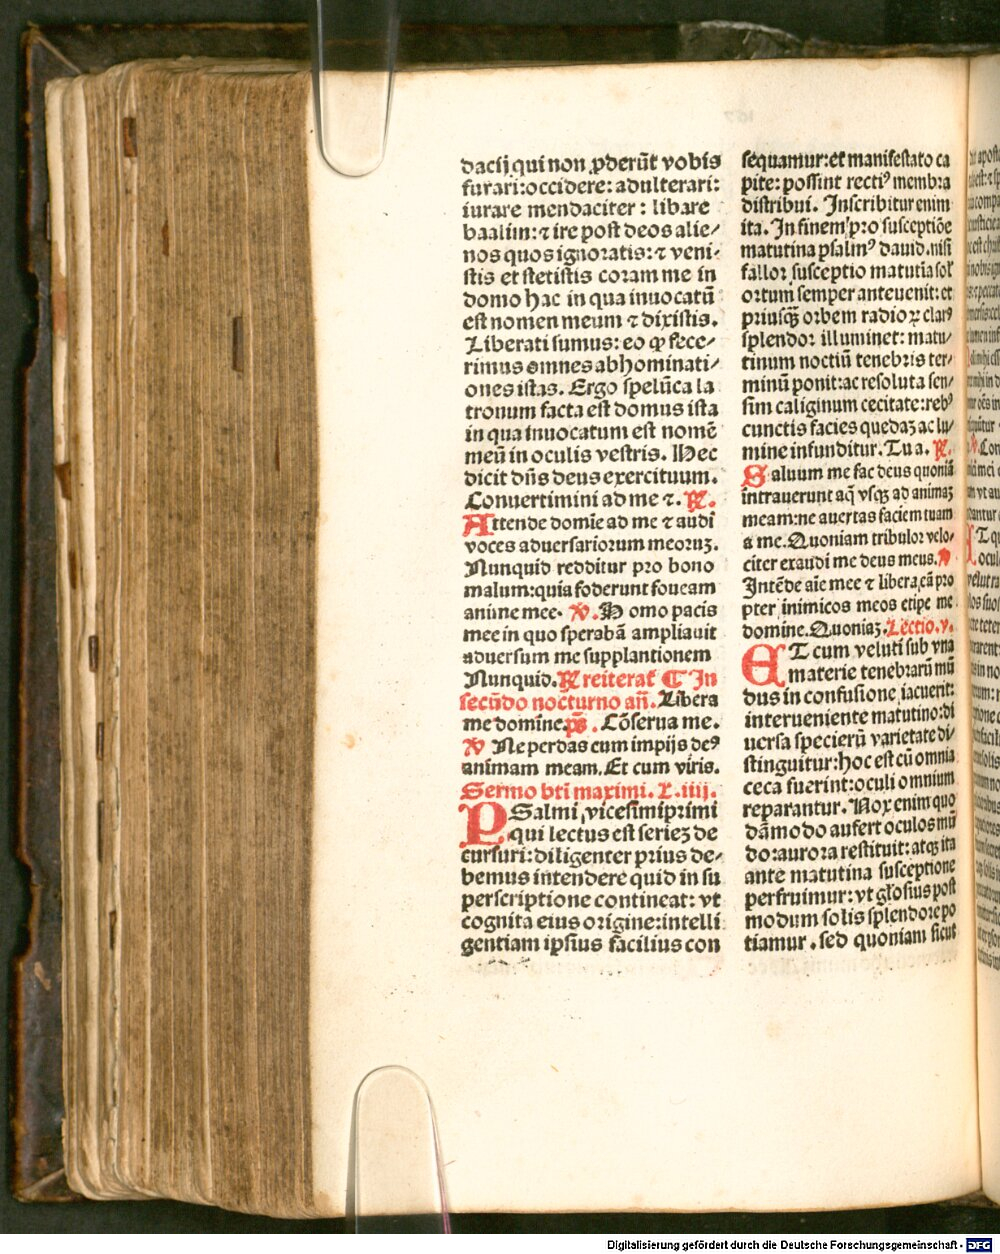 dacij qui non ꝓderūt vobis
furari:occidere: adulterari:
iurare mendaciter : libare
baalim:⁊ ire post deos alie/
nos quos ignoratis:⁊ veni/
stis et stetistis coram me in
domo hac in qua inuocatū
est nomen meum ⁊ dixistis.
Liberati sumus: eo ꝙ fece/
rimus omnes abhominati/
ones istas. Ergo spelūca la
tronum facta est domus ista
in qua inuocatum est nomē
meū in oculis vestris. Hec
dicit dn̄s deus exercituum.
Conuertimini ad me ⁊. ℟.
Attende domie ad me ⁊ audi
voces aduersariorum meoruꝫ.
Nunquid redditur pro bono
malum:quia foderunt foueam
anime mee. ℣. Homo pacis
mee in quo sperabā ampliauit
aduersum me supplantionem
Nunquid. ℟ reiterat̄ ¶ In
secūdo nocturno an̄. Libera
me domine. ps̄. Cōserua me.
℣ Ne perdas cum impijs deꝰ
animam meam. Et cum viris.
Sermo bt̄i maximi. L.iiij.
PSalmi vicesimiprimi
qui lectus est serieꝫ de
cursuri:diligenter prius de/
bemus intendere quid in su
perscriptione contineat: vt
cognita eius origine:intelli
gentiam ipsius facilius con
sequamur:et manifestato ca
pite: possint rectiꝰ membra
distribui. Inscribitur enim
ita. In finem pro susceptiōe
matutina psalmꝰ dauid.nisi
fallor susceptio matutīa sol̄
ortum semper anteuenit: et
priusqꝫ orbem radioꝝ clarꝰ
splendor illuminet: matu/
tinum noctiū tenebris ter/
minū ponit:ac resoluta sen/
sim caliginum cecitate:rebꝰ
cunctis facies quedaꝫ ac lu/
mine infunditur. Tu a. ℟.
Saluum me fac deus quoniā
intrauerunt aq̄ vsqꝫ ad animaꝫ
meam:ne auertas faciem tuam
a me. Quoniam tribulor velo/
citer exaudi me deus meus. ℣
Intēde aīe mee ⁊ libera eā pro
pter inimicos meos eripe me
domine. Quoniaꝫ. Lectio.v.
ET cum veluti sub vna
materie tenebrarū mū
dus in confusione iacuerit:
interueniente matutino:di
uersa specierū varietate di/
stinguitur:hoc est cū omnia
ceca fuerint:oculi omnium
reparantur. Nox enim quo
dāmodo aufert oculos mū
do:aurora restituit: atqꝫ ita
ante matutina susceptione
perfruimur: vt glosius post
modum solis splendore po
tiamur . sed quoniam sicut
Digitalisierung gefördert durch die Deutsche Forschungsgemeinschaft - DFG